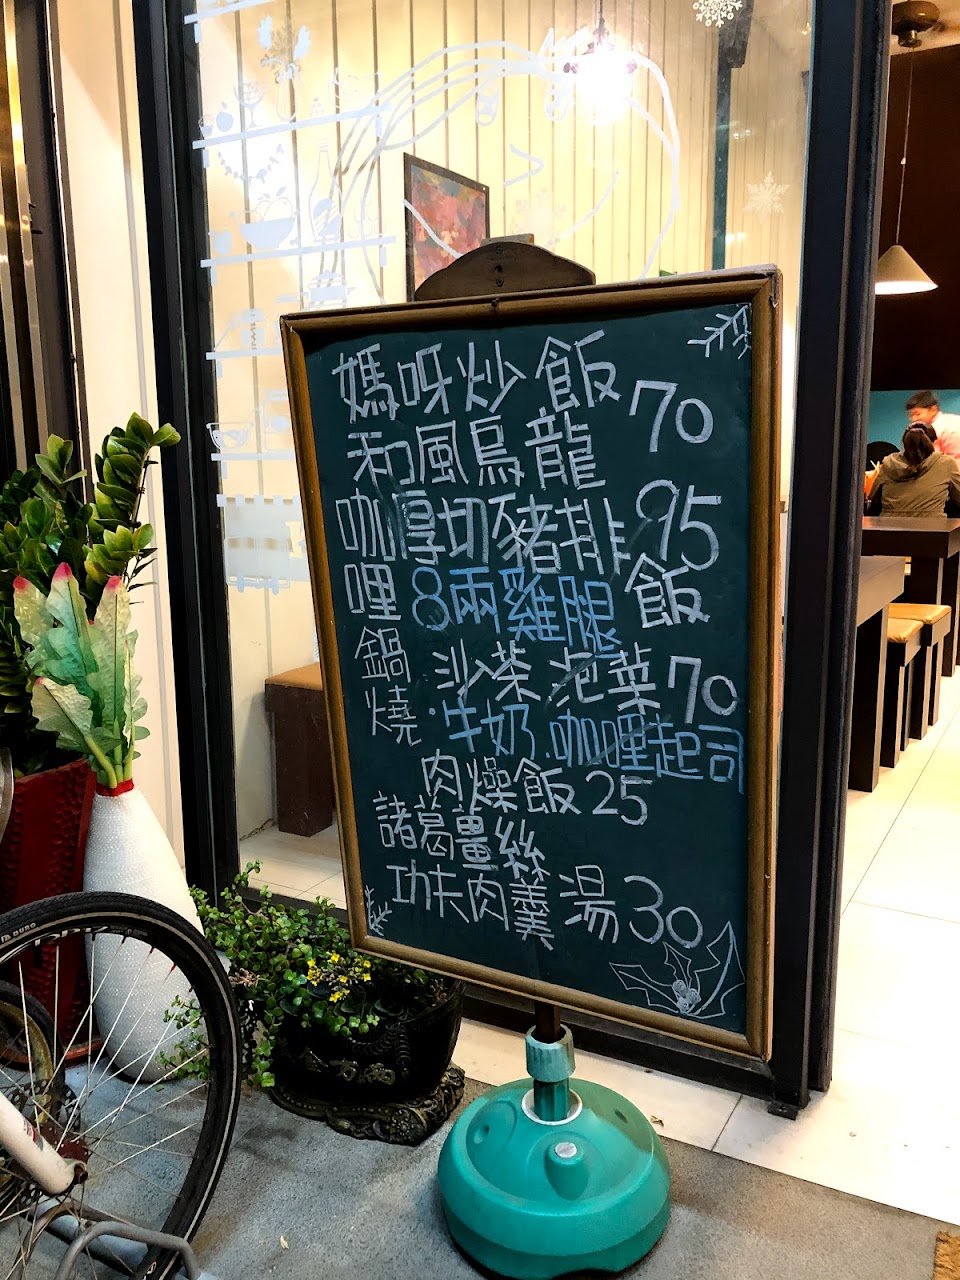 媽呀炒飯 70
和風烏龍
咖厚切豬排 95
哩 8兩雞腿 飯
鍋 沙茶.泡菜 70
燒.牛奶.咖哩起司
肉燥飯 25
諸葛薑絲
功夫肉羹湯 30